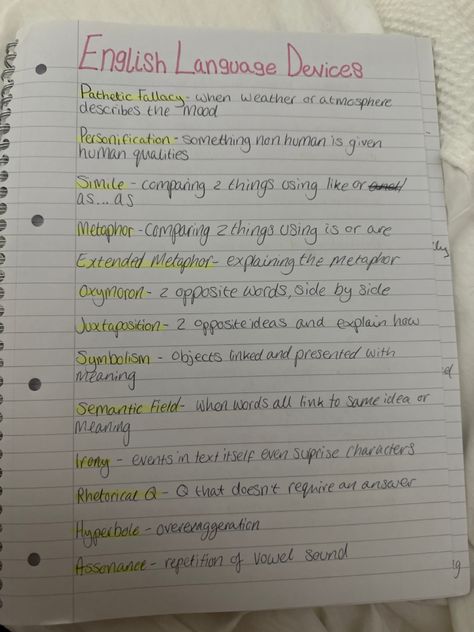 English Language Devices
Pathetic Fallacy - when weather or atmosphere
describes the mood
Personification - something non human is given
human qualities
Simile - comparing 2 things using like or and/
as...as
Metaphor - comparing 2 things using is or are
Extended Metaphor - explaining the metaphor
Oxymoron - 2 opposite words, side by side
Juxtaposition - 2 opposite ideas and explain how
Symbolism - objects linked and presented with
meaning
Semantic Field - when words all link to same idea or
meaning
Irony - events in text itself even suprise characters
Rhetorical Q - Q that doesn't require an answer
Hyperbole - overexaggeration
Assonance - repetition of vowel sound